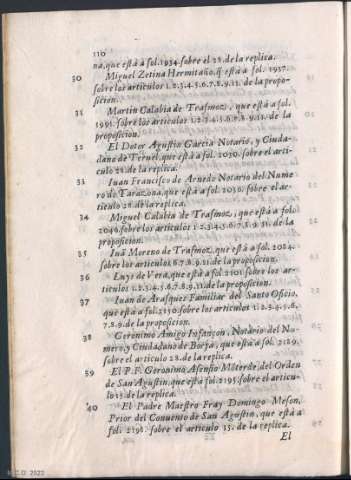 110
na, que està à fol. 1934. sobre el 28. de la replica.
30 Miguel Zetina Hermitaño, q̃ està à fol. 1937.
sobre los articulos 1. 2. 3. 4. 5. 6. 7. 8. 9. 11. de la propo-
sicion.
31 Martin Calabia de Trasmoz, que està à fol.
1991. sobre los articulos 1. 2. 3. 4. 5. 6. 7. 8. 9. 11. de la
proposicion.
32 El Dotor Agustin Garcia Notario, y Ciuda-
dano de Teruel, que està à fol. 2030. sobre el arti-
culo 28. de la replica.
33 Iuan Francisco de Arnedo Notario del Nume
ro de Tarazona, que està à fol. 2030. sobre el ar-
ticulo 28. de la replica.
34 Miguel Calabia de Trasmoz, que està à folo
2040. sobre los articulos 1. 2. 3. 4. 5. 6. 7. 8. 9. 11. de la
proposicion.
35 Iuã Moreno de Trasmoz, que està à fol. 2024.
sobre los articulos 6. 7. 8. 9. 11. de la proposicion.
36 Luys de Vera, que està à fol. 2101. sobre los ar-
ticulos 1. 2. 3. 4. 5. 6. 7. 8. 9. 11. de la proposicion.
37 Iuan de Arasques Familiar del Santo Oficio,
que està à fol. 2150. sobre los articulos 1. 2. 3. 4. 5. 6.
7. 8. 9. de la proposicion.
38 Geronimo Amigo Infançon, Notario del Nu-
mero, y Ciudadano de Borja, que està à fol. 2189.
sobre el articulo 28. de la replica.
39 El P. F. Geronimo Asensio Mõterde, del Orden
de San Agustin, que està à fol. 2195. sobre el articu-
lo 15. de la replica.
40 El Padre Maestro Fray Domingo Meson,
Prior del Conuento de San Agustin, que està à
fol. 2198. sobre el articulo 15. de la replica.
El